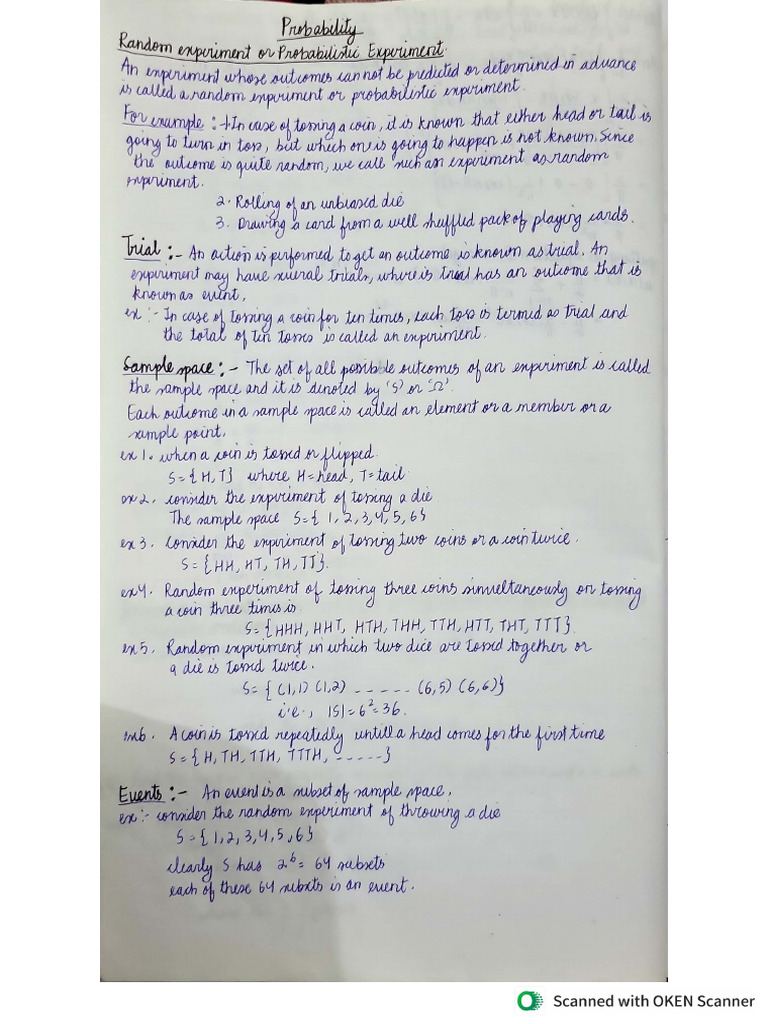 Probability
Random experiment or Probabilistic Experiment.
An experiment whose outcomes cannot be predicted or determined in advance
is called a random experiment or probabilistic experiment.
For example :- 1. In case of tossing a coin, it is known that either head or tail is
going to turn in toss, but which one is going to happen is not known. Since
the outcome is quite random, we call such an experiment as random
experiment.
2. Rolling of an unbiased die
3. Drawing a card from a well shuffled pack of playing cards.
Trial :- An action is performed to get an outcome is known as trial. An
experiment may have several trials, where is trial has an outcome that is
known as event.
ex :- In case of tossing a coin for ten times, each toss is termed as trial and
the total of ten tosses is called an experiment.
Sample space :- The set of all possible outcomes of an experiment is called
the sample space and it is denoted by 'S' or 'Ω'.
Each outcome in a sample space is called an element or a member or a
sample point.
ex 1. when a coin is tossed or flipped.
S = {H, T} where H = head, T = tail
ex 2. consider the experiment of tossing a die
The sample space S = { 1, 2, 3, 4, 5, 6}
ex 3. Consider the experiment of tossing two coins or a coin twice.
S = {HH, HT, TH, TT}.
ex 4. Random experiment of tossing three coins simultaneously or tossing
a coin three times is
S = {HHH, HHT, HTH, THH, TTH, HTT, THT, TTT}.
ex 5. Random experiment in which two dice are tossed together or
a die is tossed twice.
S = { (1,1) (1,2) ----- (6,5) (6,6)}
i.e., |S| = 6² = 36.
ex 6. A coin is tossed repeatedly untill a head comes for the first time
S = { H, TH, TTH, TTTH, -----}
Events :- An event is a subset of sample space.
ex :- consider the random experiment of throwing a die
S = { 1, 2, 3, 4, 5, 6}
clearly S has 2⁶ = 64 subsets
each of these 64 subsets is an event.
Scanned with OKEN Scanner